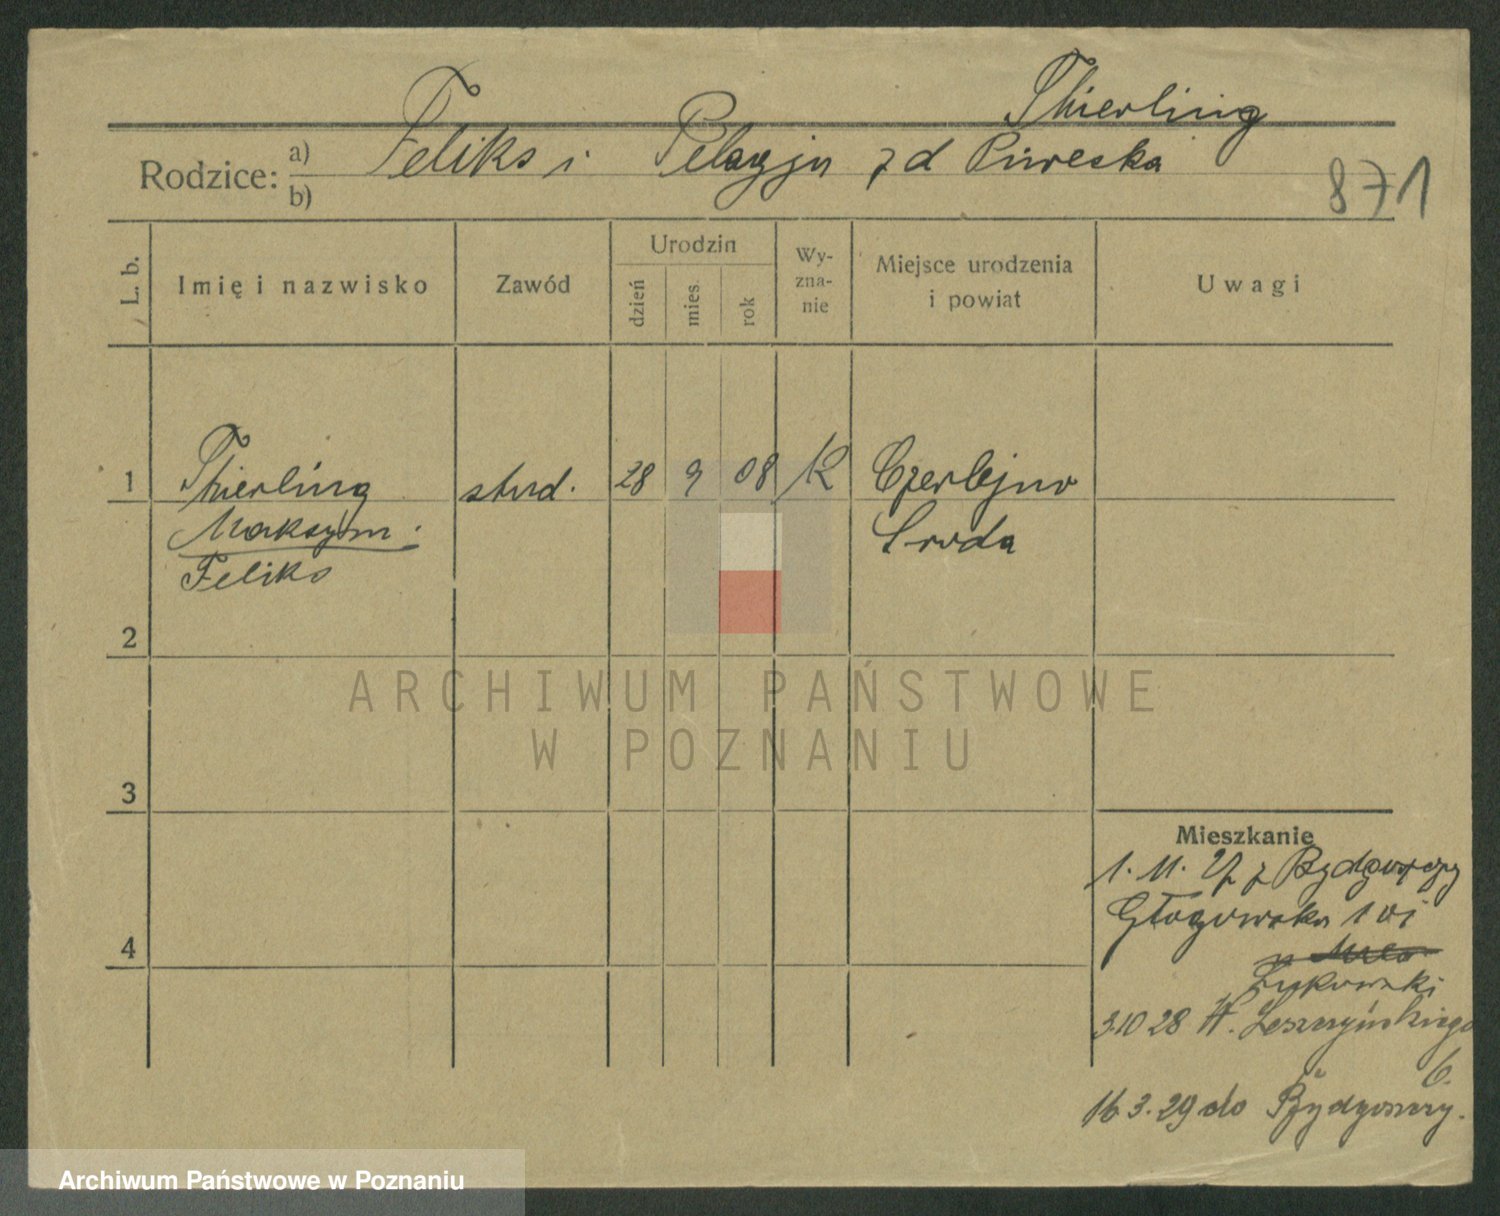 Thierling
Rodzice: a) Feliks i Pelagja z d Piwecka
b)
871
L. b.
Imię i nazwisko
Zawód
Urodzin
dzień
mies.
rok
Wy-
zna-
nie
Miejsce urodzenia
i powiat
Uwagi
1 Thierling stud. 28 9 08 K Czerlejno
Maksym. Środa
Feliks
2
3
4
Mieszkanie
1. 11. 27 z Bydgoszczy
Głogowska 1
Żukowski
3.10 28 Leszczyńskiego
6.
16.3.29 do Bydgoszczy.
ARCHIWUM PAŃSTWOWE
W POZNANIU
Archiwum Państwowe w Poznaniu